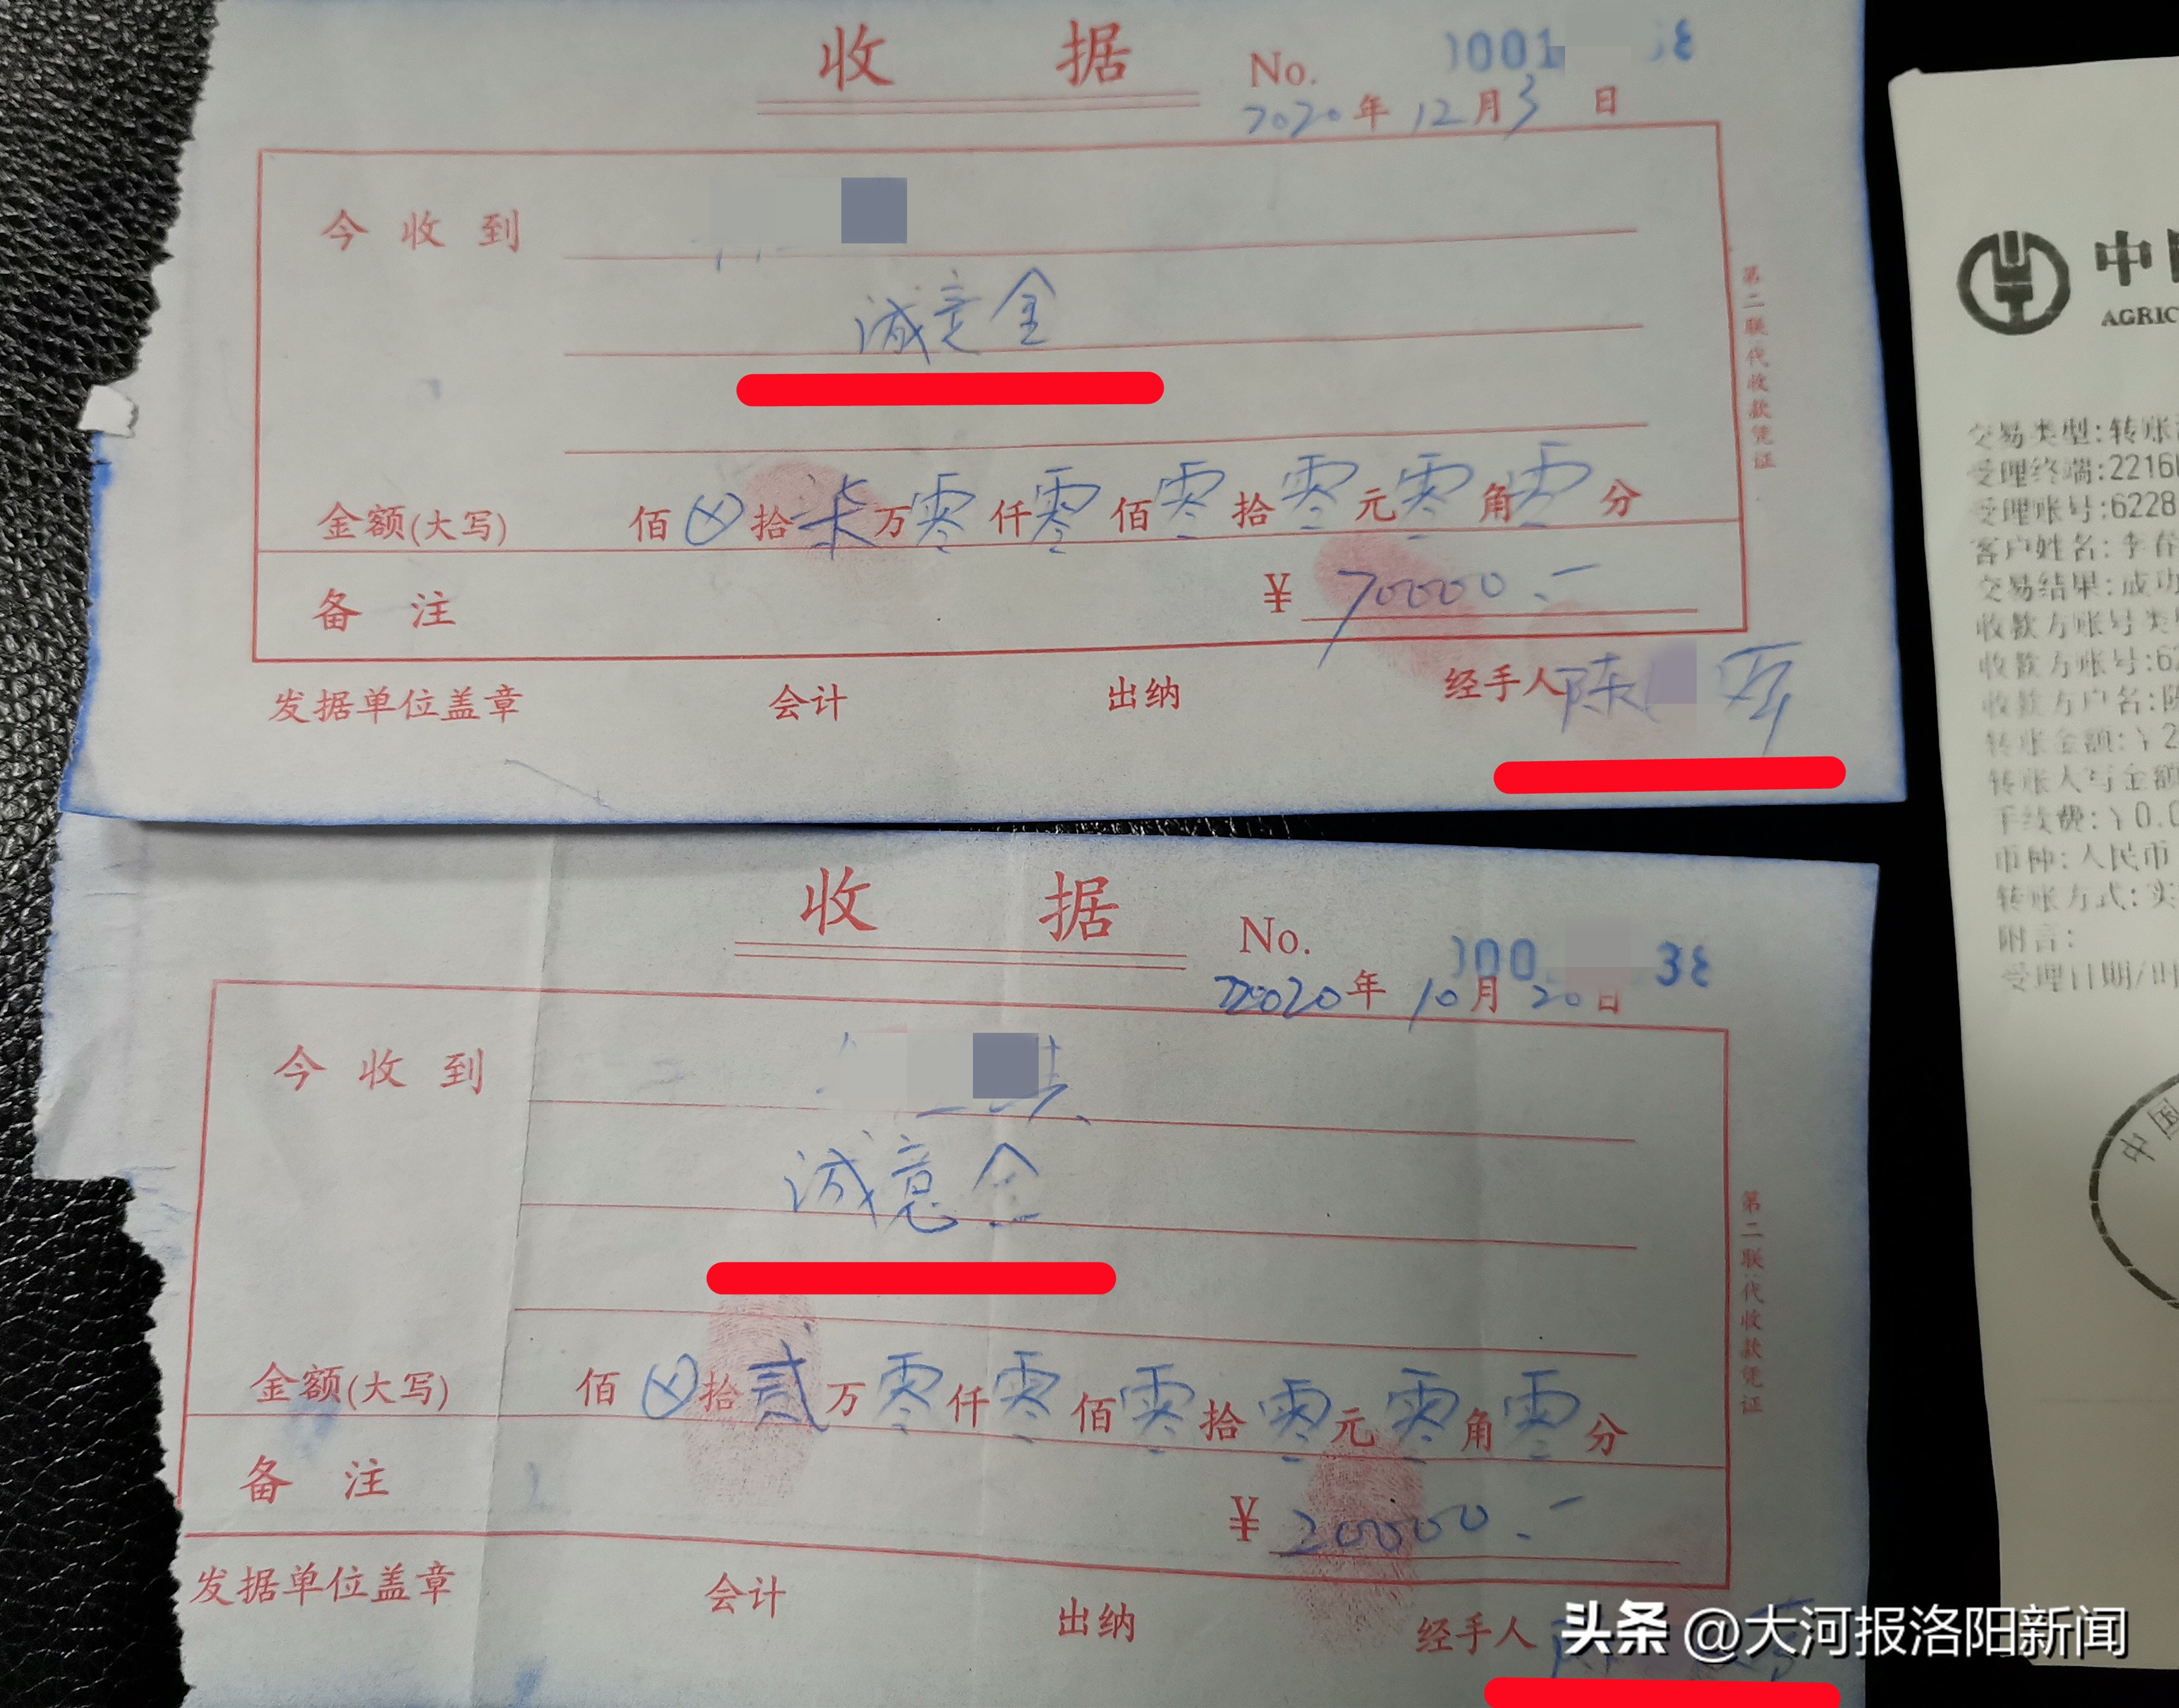 收 据
No. 001
2020年12月3日
今收到
诚意金
金额(大写) 佰 拾柒万零仟零佰零拾零元零角零分
备注 ¥70000.-
发据单位盖章 会计 出纳 经手人陈
第二联代收款凭证
收 据
No. 00 38
2020年10月20日
今收到
诚意金
金额(大写) 佰 拾贰万零仟零佰零拾零元零角零分
备注
¥20000.-
发据单位盖章 会计 出纳 经手人
第二联代收款凭证
中
AGRIC
交易类型:转账
受理终端:2216
受理账号:6228
客户姓名:李春
交易结果:成功
收款方账号类
收款方账号:62
收款方户名:陈
转账金额:¥2
转账大写金额
手续费:¥0.0
币种:人民币
转账方式:实
附言:
受理日期/时
中国
头条 @大河报洛阳新闻